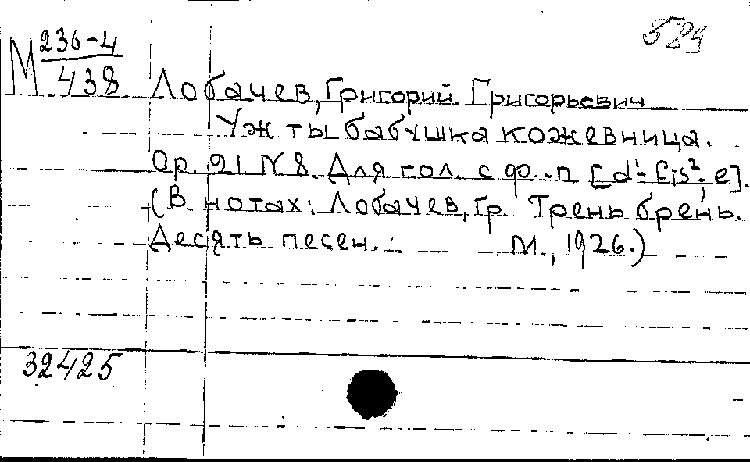 М 236-4
438
524
Лобачев, Григорий Григорьевич
Уж ты бабушка кожевница.
Op. 21 N 8. Для гол. с ф.-п [d¹-fis²; e].
(В нотах: Лобачев, Гр. Трень брень.
Десять песен.: М., 1926.)
32425